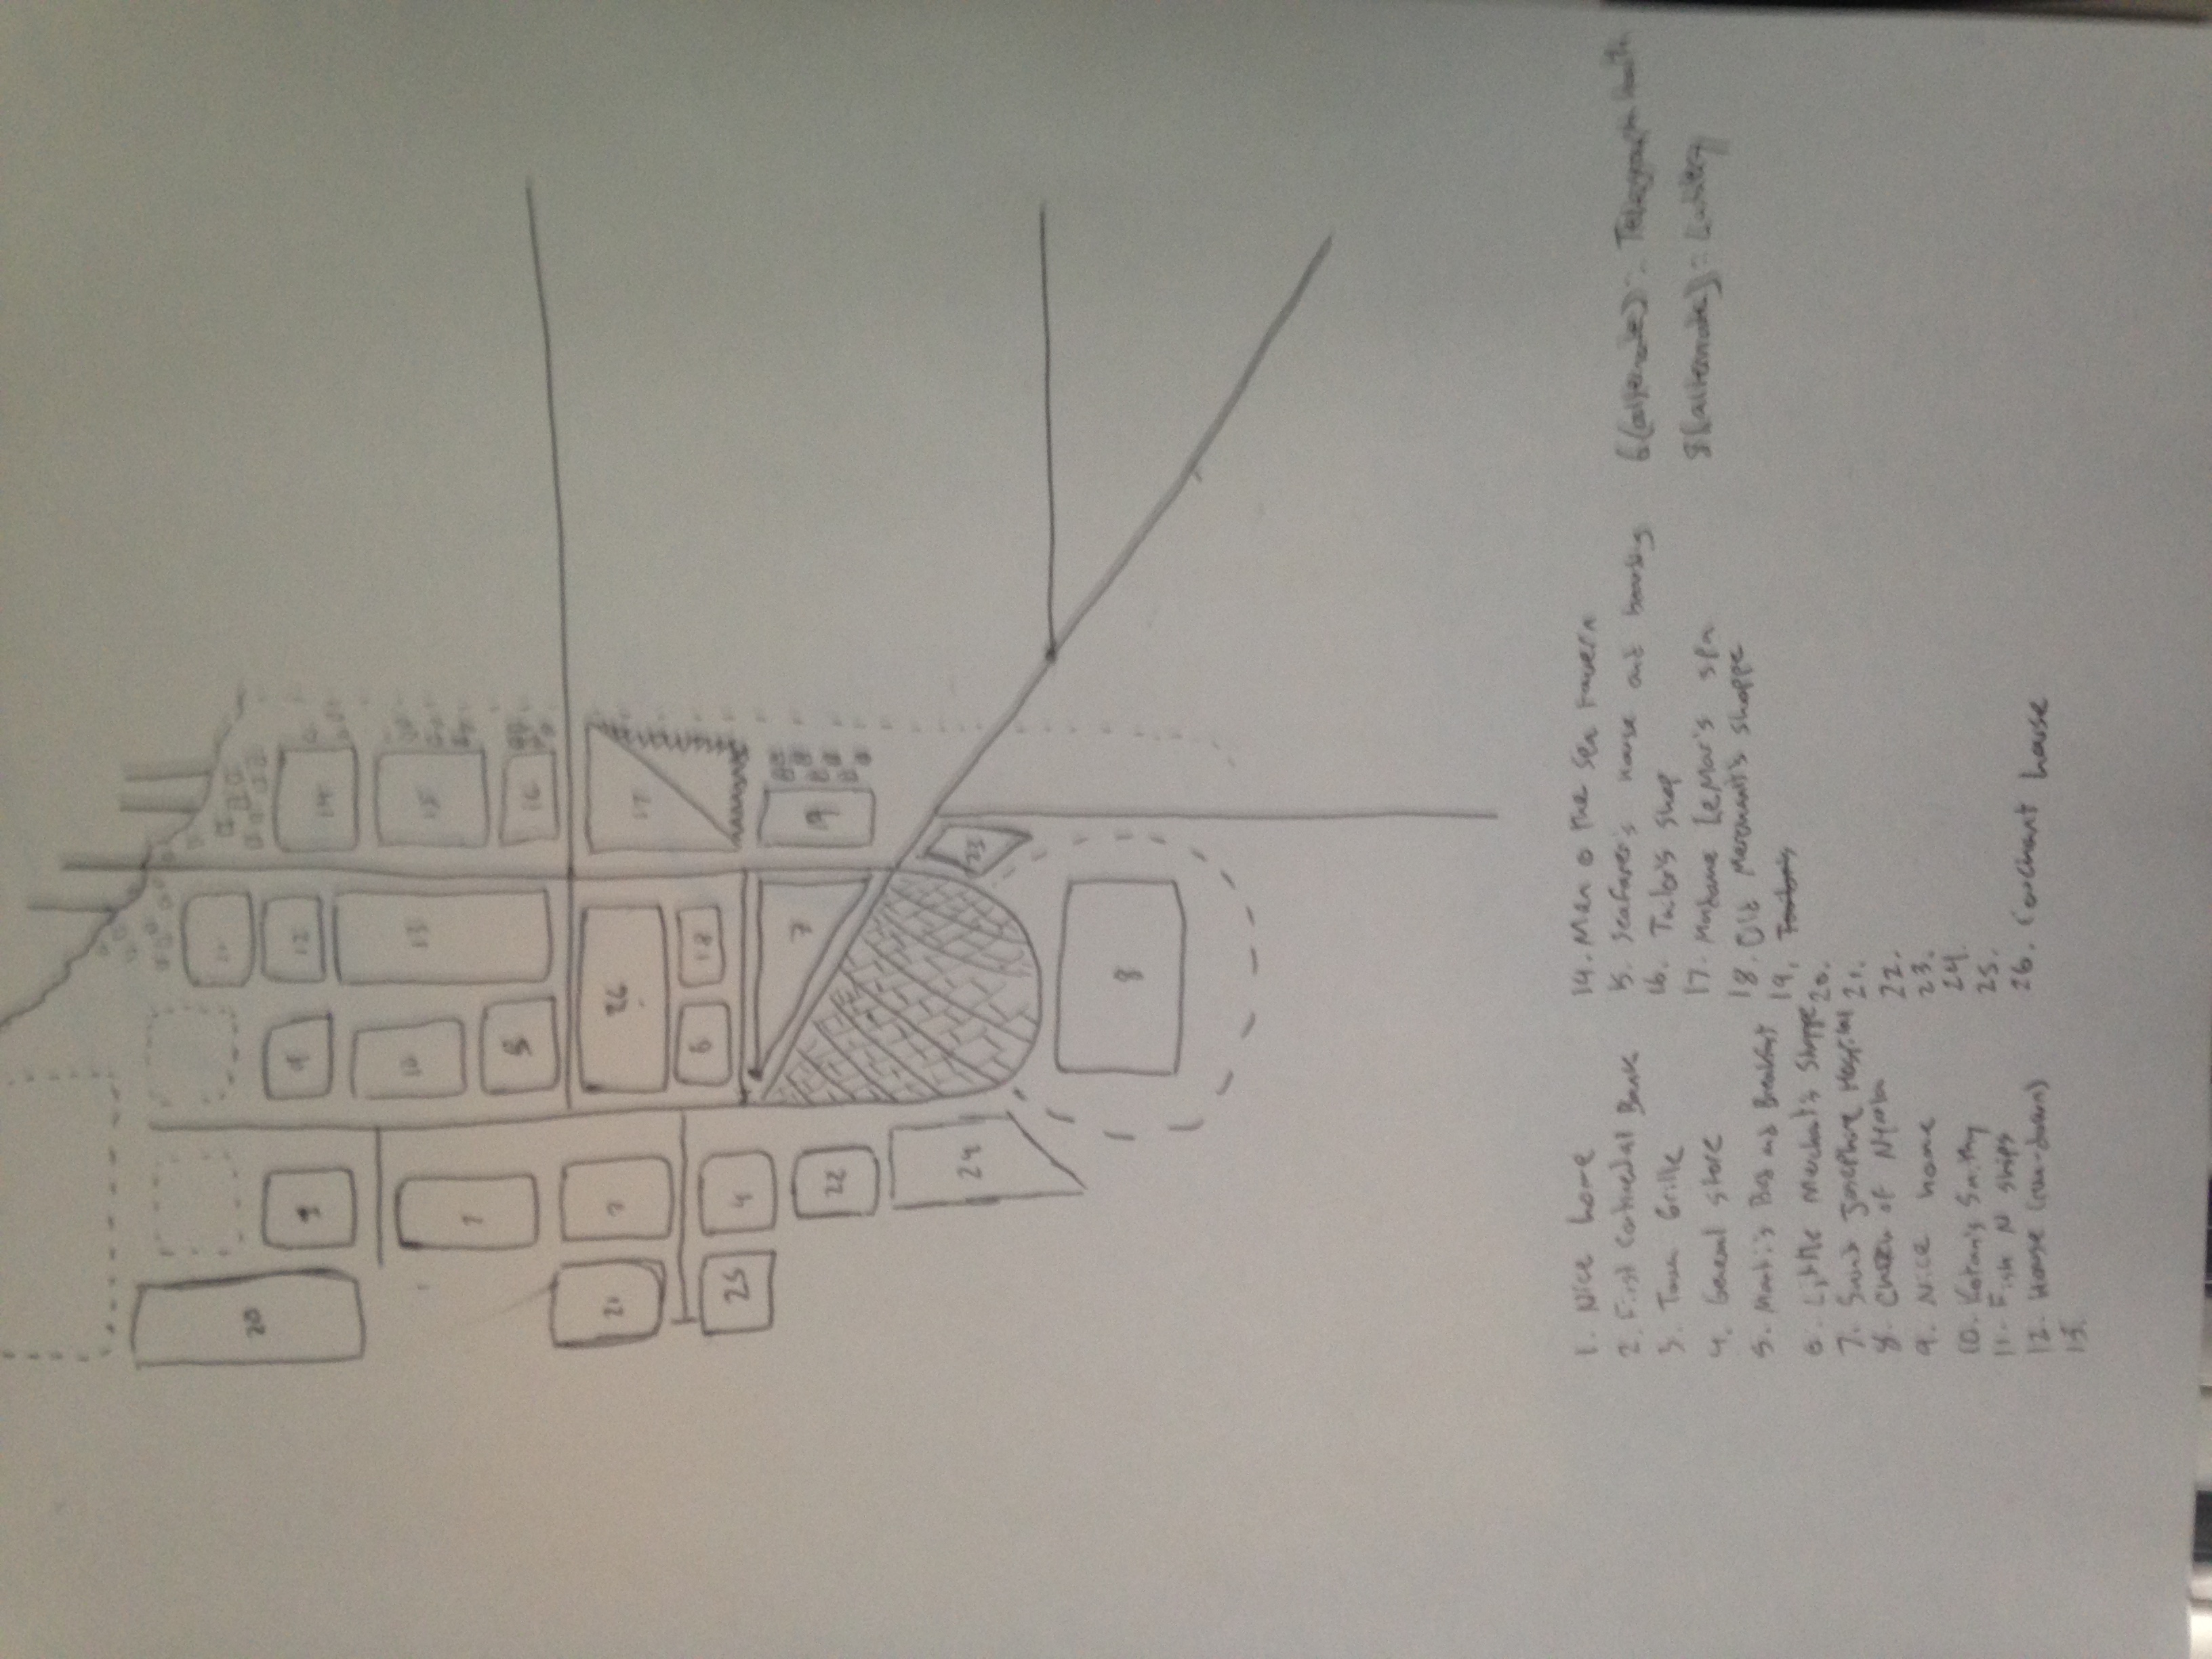 20
9
12
14
10
13
15
5
16
21
26
17
6
18
25
4
7
22
24
23
8
1. Nice home
2. First Continental Bank
3. Town Grille
4. General store
5. Bed and Breakfast
6. Little Merchant's Shoppe
7. Saint Josephine Hospital
8. Church of
9. Nice home
10. Smithy
11. Fish N Ships
12. House (run-down)
13.
14. Man o the Sea tavern
15. Seafarer's House and boarding
16. Tailor's Shop
17. Madame LeMar's spa
18. Old Merchant's Shoppe
19. Tailor's
20.
21.
22.
23.
24.
25.
26. Couchant house
6 (alternate): Telegraph
8 (alternate):